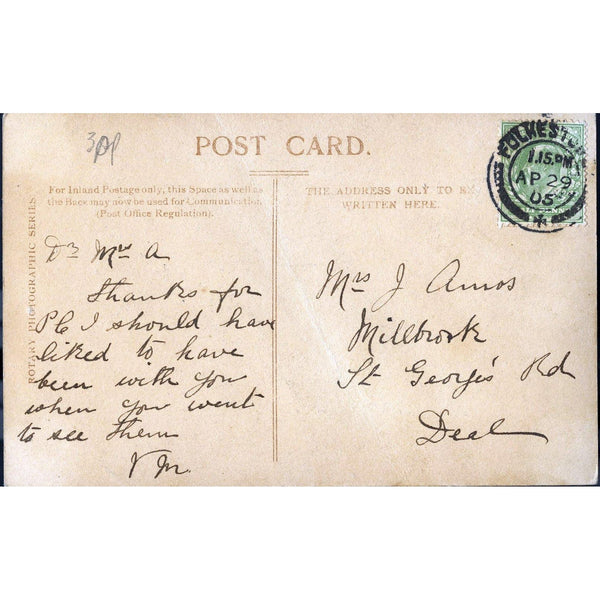 3pp
POST CARD.
For Inland Postage only, this Space as well as
the Back may now be used for Communication.
(Post Office Regulation).
THE ADDRESS ONLY TO BE
WRITTEN HERE.
ROTARY PHOTOGRAPHIC SERIES
FOLKESTONE
1.15.PM
AP 29
05
Dr Mrs A
Thanks for
PC I should have
liked to have
been with you
when you went
to see them
V M.
Mrs J Amos
Millbrook
St George's Rd
Deal